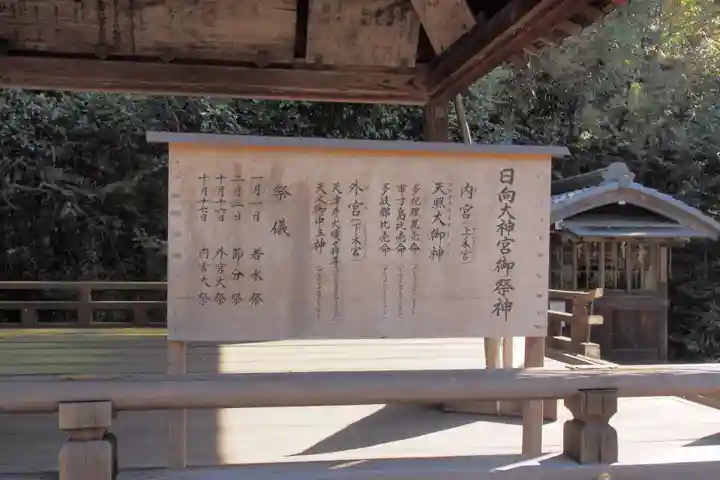 日向大神宮御祭神
内宮(上本宮)
天照大御神
多紀理毘売命
市寸島比売命
多岐都比売命
外宮(下本宮)
天津彦火瓊々杵尊
天之御中主神
祭儀
一月一日 若水祭
二月三日 節分祭
十月十六日 外宮大祭
十月十七日 内宮大祭